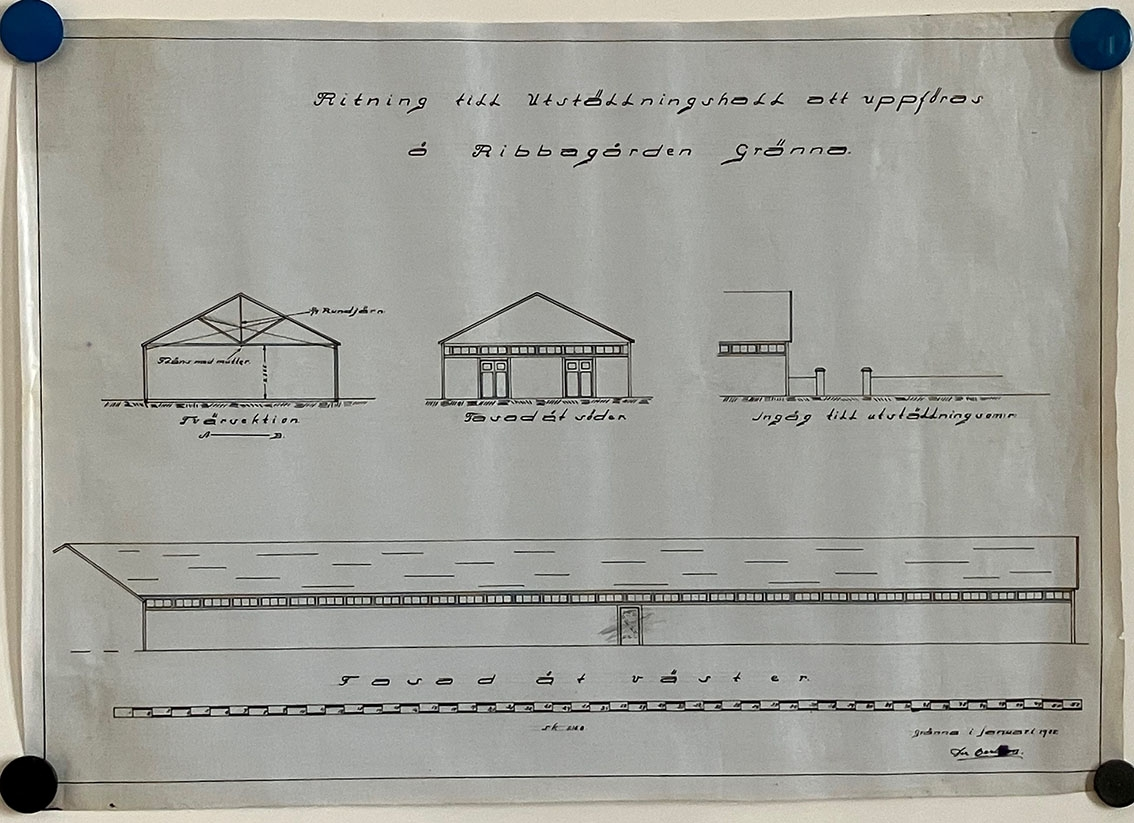 Ritning till Utställningshall att uppföras
å Ribbagården Gränna.
Rundjärn
Fläns med mutter.
Tvärsektion
A B.
Fasad åt söder
Ingåg till utställningsomr.
Fasad åt väster.
sk
Gränna i Januari